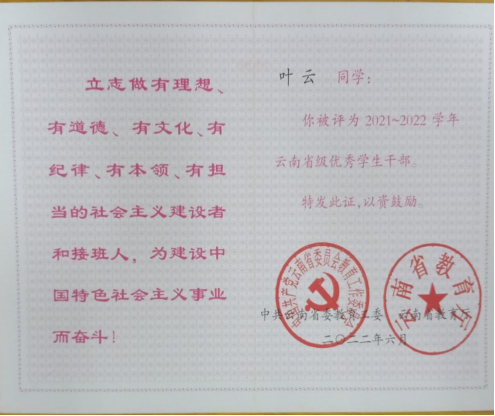 立志做有理想、
有道德、有文化、有
纪律、有本领、有担
当的社会主义建设者
和接班人，为建设中
国特色社会主义事业
而奋斗！
叶云 同学：
你被评为2021~2022学年
云南省级优秀学生干部。
特发此证，以资鼓励。
中国共产党云南省委员会教育工作委员会
云南省教育厅
中共云南省委教育工委 云南省教育厅
二〇二二年六月